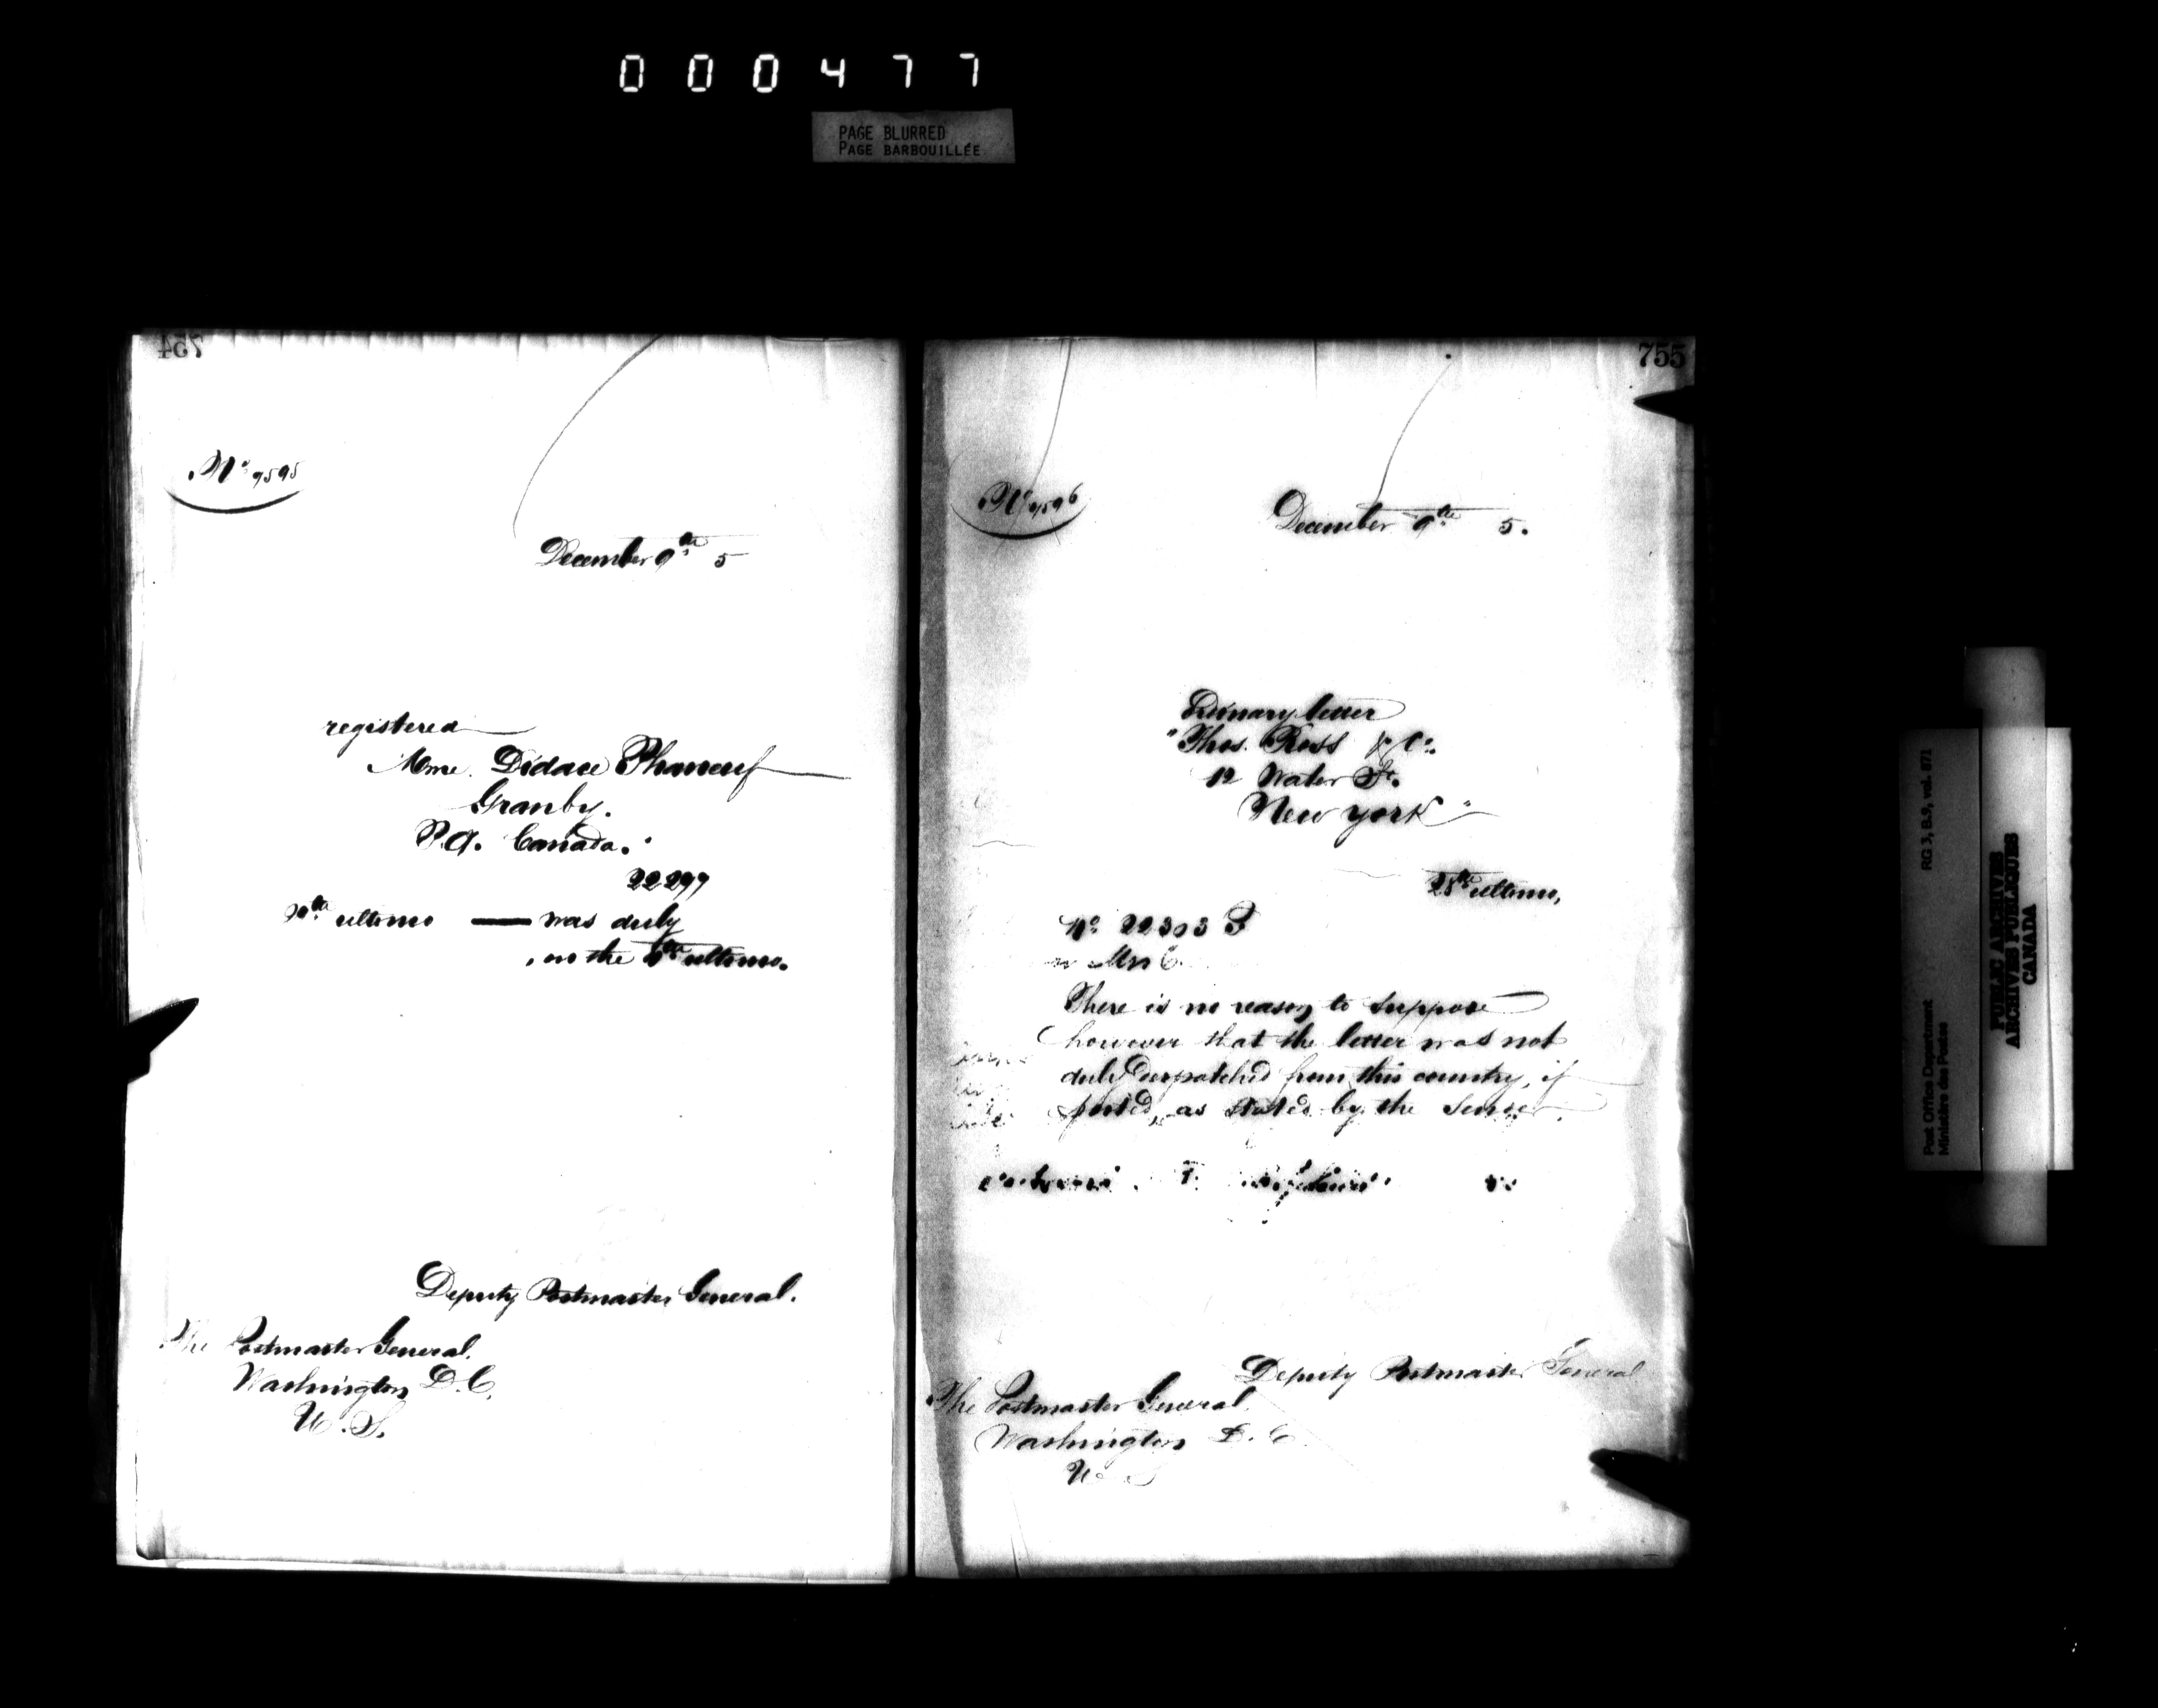 000477
PAGE BLURRED
PAGE BARBOUILLÉE
754
No. 9595
December 9th 5
registered
Mme. Didace Phaneuf
Granby.
P.Q. Canada.
22297
ultimo — was duly
on the ultimo.
Deputy Postmaster General.
The Postmaster General.
Washington D.C.
U.S.
755
No. 9596
December 9th 5.
Ordinary letter
"Thos. Ross & Co.
12 Water St.
New York"
28th ultimo,
No. 22303
There is no reason to suppose
however that the letter was not
duly despatched from this country, if
posted, as stated by the sender.
Deputy Postmaster General
The Postmaster General.
Washington D.C.
U.S.
RG 3, B.9, vol. 871
Post Office Department
Ministère des Postes
PUBLIC ARCHIVES
ARCHIVES PUBLIQUES
CANADA